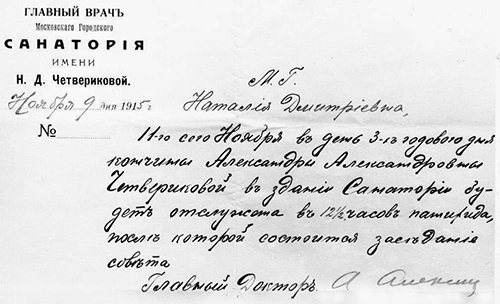 ГЛАВНЫЙ ВРАЧЪ
Московскаго Городского
САНАТОРІЯ
ИМЕНИ
Н. Д. Четвериковой.
Ноября 9 дня 1915 г.
№
М. Г.
Наталія Дмитріевна,
11-го сего Ноября въ день 3-хъ годового дня
кончины Александры Александровны
Четвериковой въ зданіи Санаторіи бу-
детъ отслужена въ 12½ часовъ панихида,
послѣ которой состоится засѣданіе
совѣта
Главный Докторъ. А Алексин